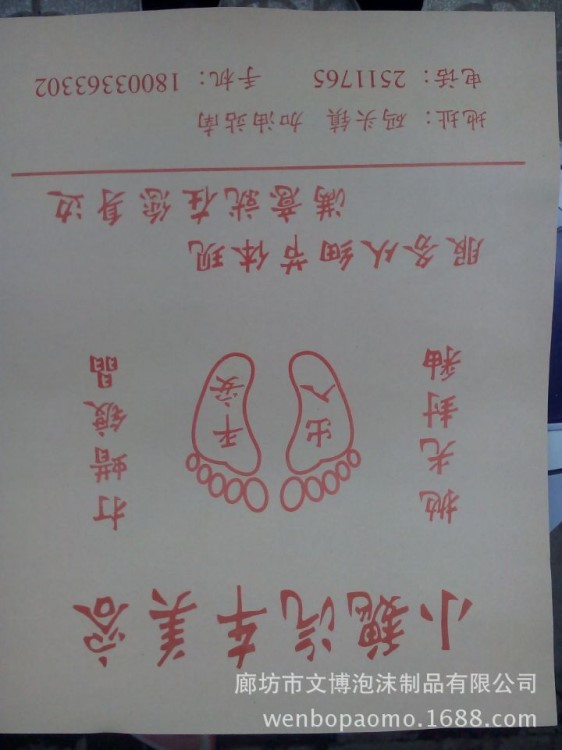 小魏汽车美容
抛光封釉
出入
平安
打蜡镀晶
服务从细节体现
满意就在您身边
地址：码头镇 加油站南
电话：2511765 手机：18003363302
廊坊市文博泡沫制品有限公司
wenbopaomo.1688.com